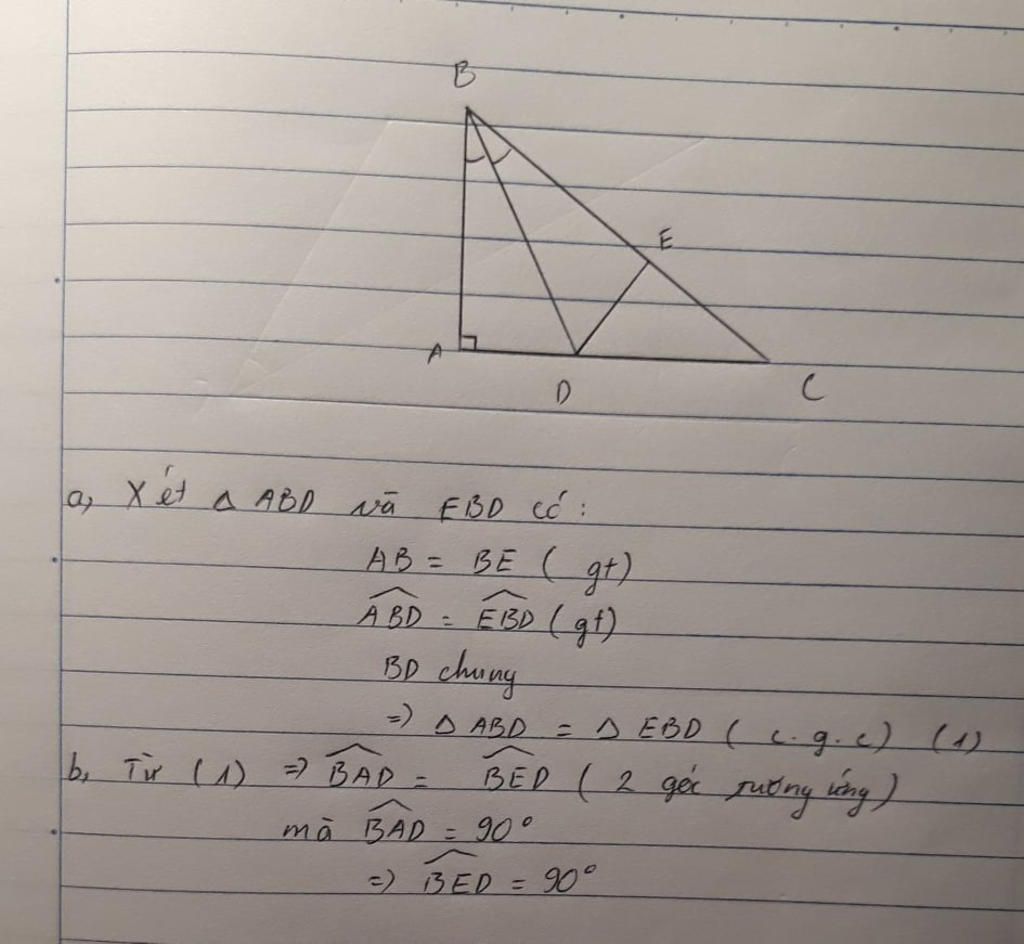 B
E
A
D
C
a, Xét Δ ABD và EBD có:
AB = BE ( gt)
\widehat{ABD} = \widehat{EBD} ( gt)
BD chung
=) Δ ABD = Δ EBD ( c.g.c) (1)
b, Từ (1) => \widehat{BAD} = \widehat{BED} ( 2 góc tương ứng)
mà \widehat{BAD} = 90°
=) \widehat{BED} = 90°